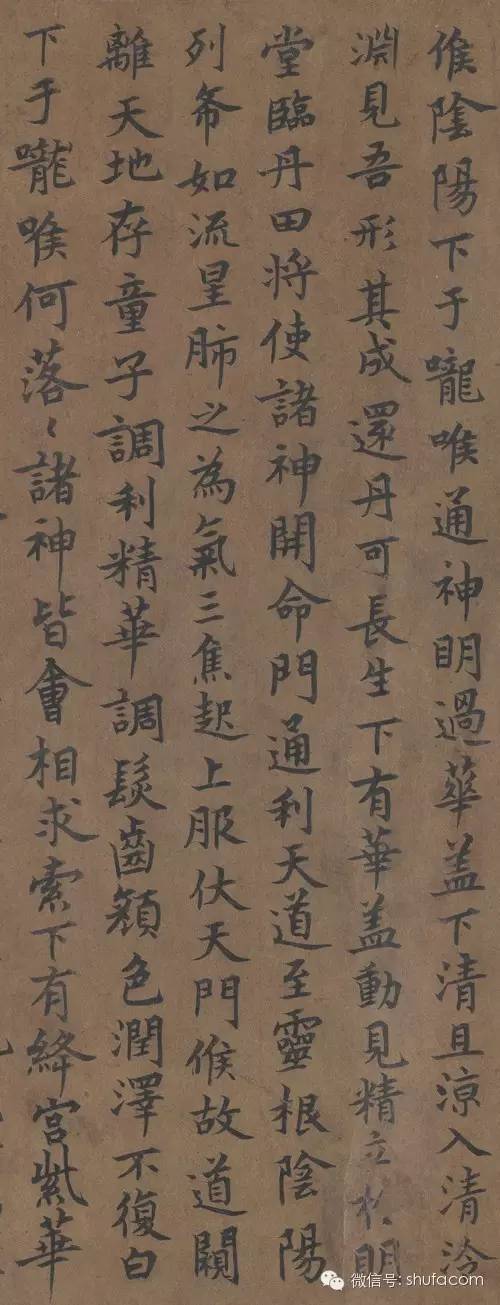 候陰陽下于嚨喉通神明過華盖下清且涼入清泠
淵見吾形其成還丹可長生下有華盖動見精立於明
堂臨丹田将使諸神開命門通利天道至靈根陰陽
列布如流星肺之為氣三焦起上服伏天門候故道闚
離天地存童子調利精華調髮齒顔色潤澤不復白
下于嚨喉何落〻諸神皆會相求索下有絳宫紫華
微信号: shufacom